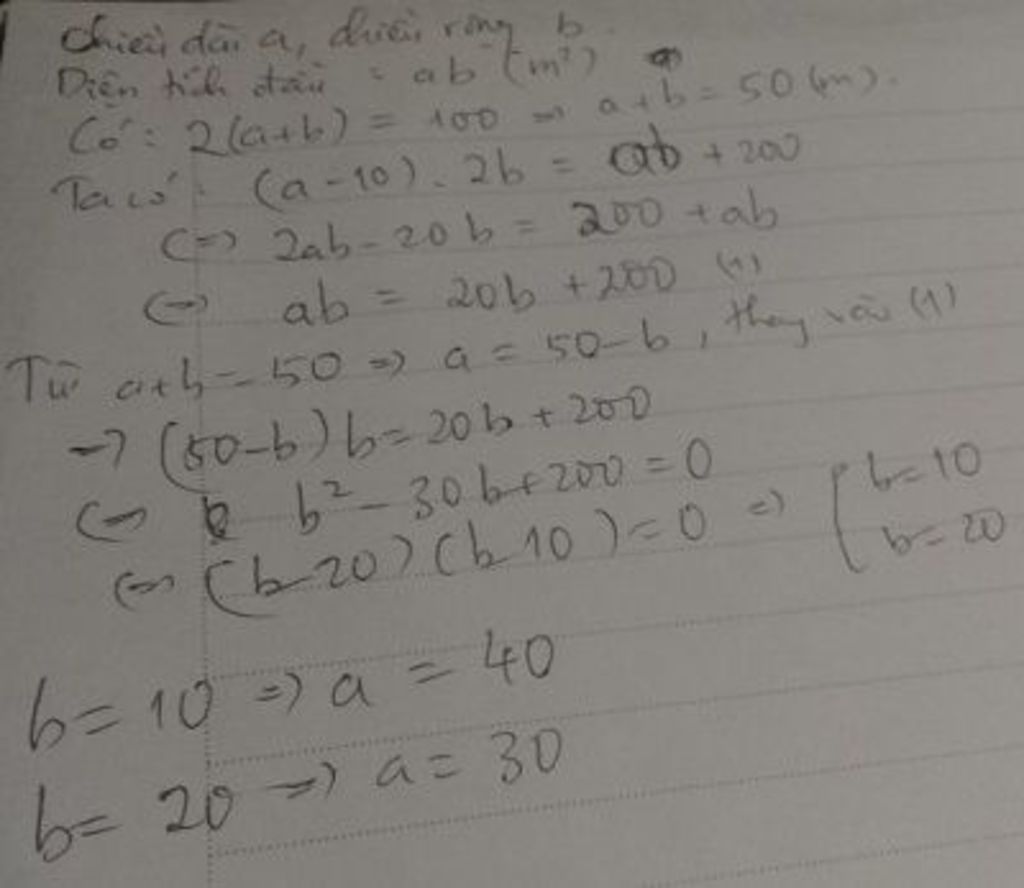 Chiều dài a, chiều rộng b.
Diện tích đầu = ab (m²)
Có: 2(a+b) = 100 => a+b = 50 (m).
Ta có: (a-10).2b = ab + 200
<=> 2ab - 20b = 200 + ab
<=> ab = 20b + 200 (1)
Từ a+b = 50 => a = 50-b, thay vào (1)
-> (50-b)b = 20b + 200
<=> b² - 30b + 200 = 0
<=> (b-20)(b-10) = 0 => [ b=10
b=20
b = 10 => a = 40
b = 20 => a = 30